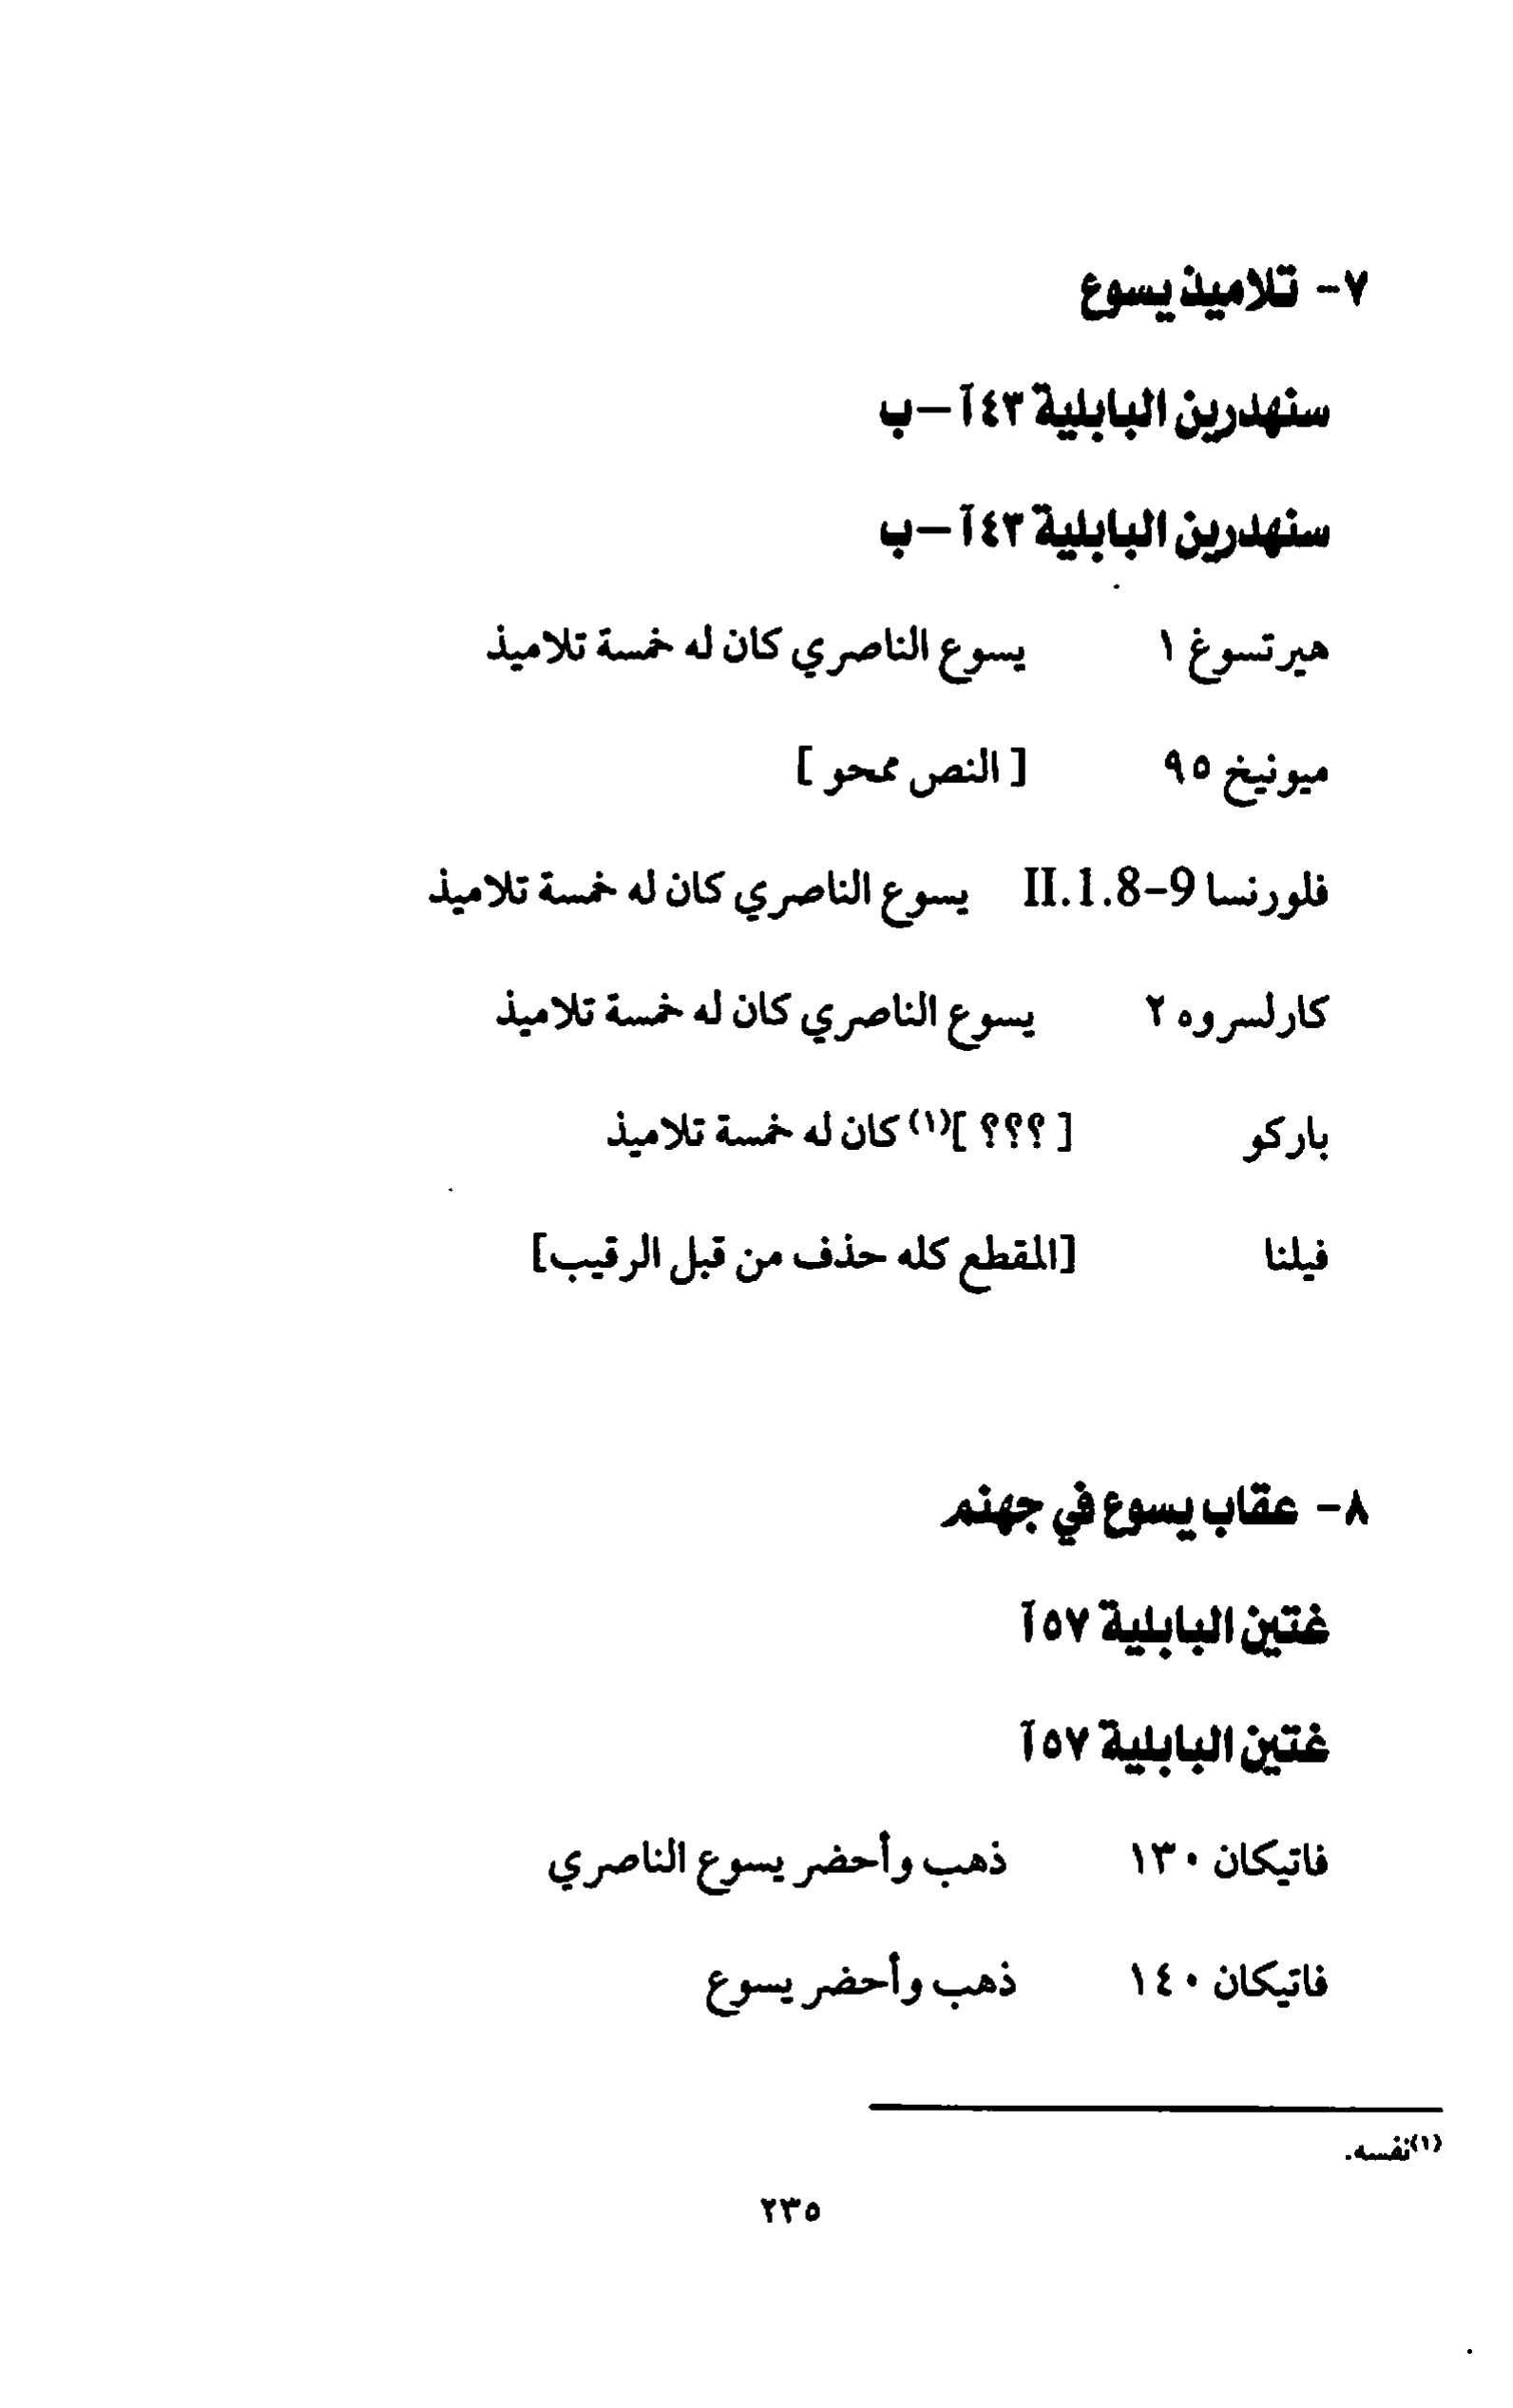 ٧- تلاميذ يسوع
سنهدرين البابلية ٤٣آ-ب
سنهدرين البابلية ٤٣آ-ب
هيرتسوغ ١ يسوع الناصري كان له خمسة تلاميذ
ميونيخ ٩٥ [ النص ممحو ]
فلورنسا II.1.8-9 يسوع الناصري كان له خمسة تلاميذ
كارلسروه ٢ يسوع الناصري كان له خمسة تلاميذ
باركو [ ؟؟؟ ](١) كان له خمسة تلاميذ
فيلنا [المقطع كله حذف من قبل الرقيب]
٨- عقاب يسوع في جهنم
غتين البابلية ٥٧آ
غتين البابلية ٥٧آ
فاتيكان ١٣٠ ذهب وأحضر يسوع الناصري
فاتيكان ١٤٠ ذهب وأحضر يسوع
(١)نفسه.
٢٣٥